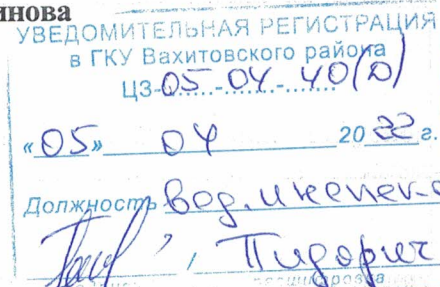 инова
УВЕДОМИТЕЛЬНАЯ РЕГИСТРАЦИЯ
в ГКУ Вахитовского района
ЦЗ-05-04-40(д)
«05» 04 2022 г.
Должность вед. инспек
/